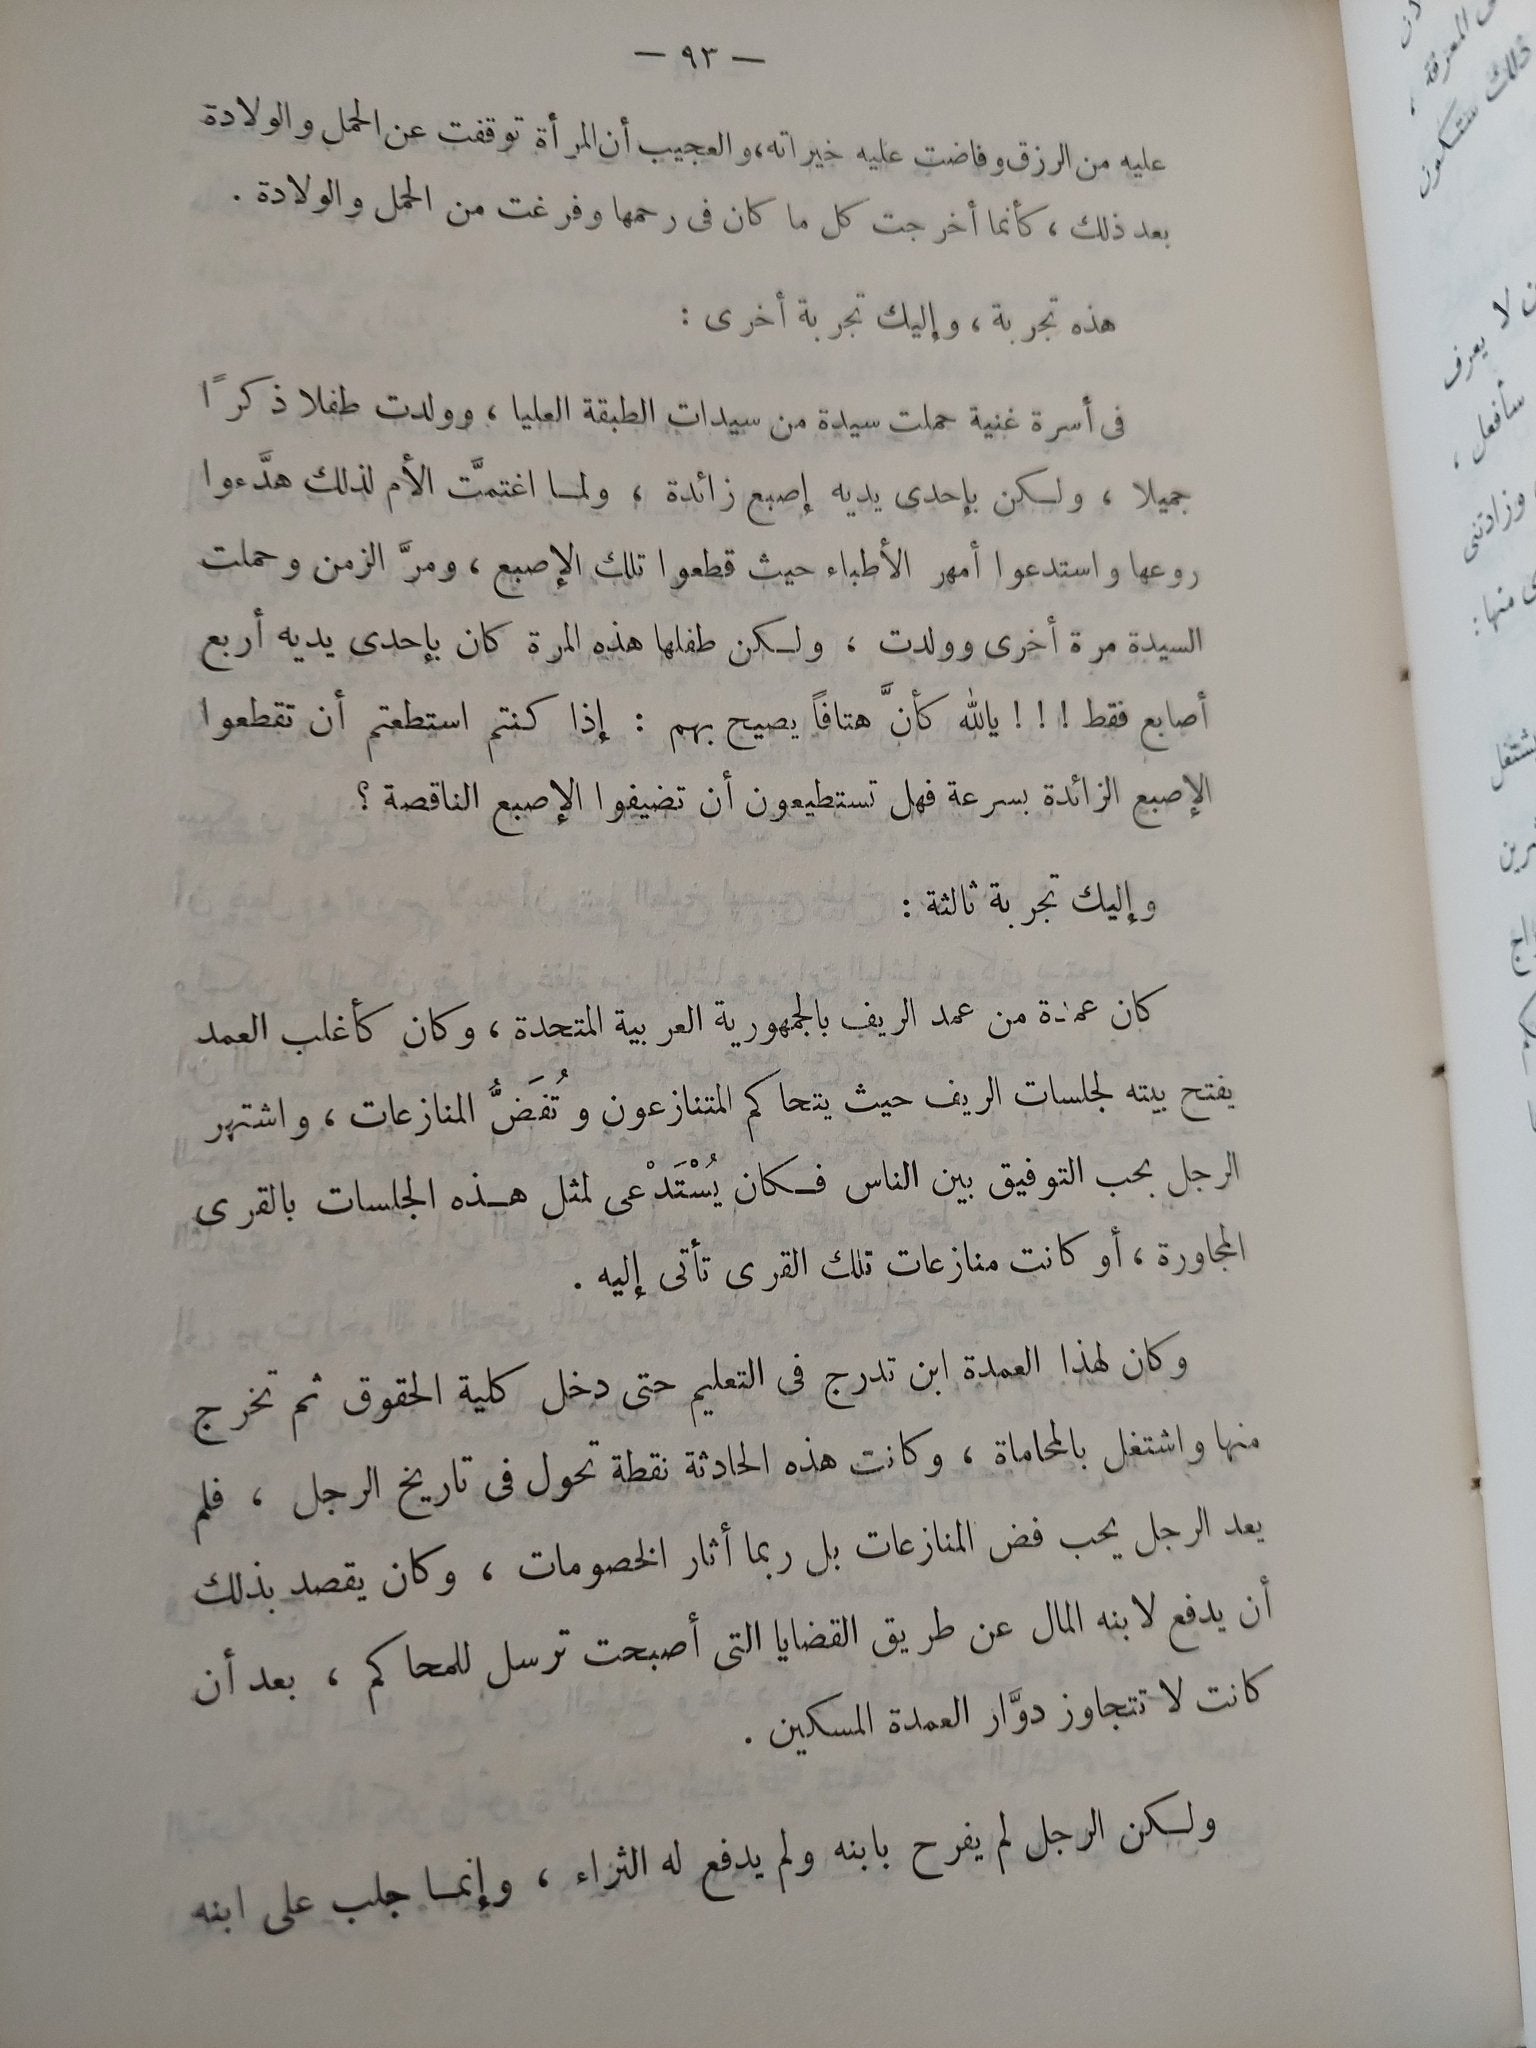 — ٩٣ —
عليه من الرزق وفاضت عليه خيراته، والعجيب أن المرأة توقفت عن الحمل والولادة
بعد ذلك ، كأنما أخرجت كل ما كان فى رحمها وفرغت من الحمل والولادة .
هذه تجربة ، وإليك تجربة أخرى :
فى أسرة غنية حملت سيدة من سيدات الطبقة العليا ، وولدت طفلا ذكراً
جميلا ، ولكن بإحدى يديه إصبع زائدة ، ولما اغتمَّت الأم لذلك هدَّءوا
روعها واستدعوا أمهر الأطباء حيث قطعوا تلك الإصبع ، ومرَّ الزمن وحملت
السيدة مرة أخرى وولدت ، ولكن طفلها هذه المرة كان بإحدى يديه أربع
أصابع فقط ! ! ! يالله كأنَّ هتافاً يصيح بهم : إذا كنتم استطعتم أن تقطعوا
الإصبع الزائدة بسرعة فهل تستطيعون أن تضيفوا الإصبع الناقصة ؟
وإليك تجربة ثالثة :
كان عمدة من عمد الريف بالجمهورية العربية المتحدة ، وكان كأغلب العمد
يفتح بيته لجلسات الريف حيث يتحاكم المتنازعون وتُفَضُّ المنازعات ، واشتهر
الرجل بحب التوفيق بين الناس فكان يُسْتَدْعى لمثل هذه الجلسات بالقرى
المجاورة ، أو كانت منازعات تلك القرى تأتى إليه .
وكان لهذا العمدة ابن تدرج فى التعليم حتى دخل كلية الحقوق ثم تخرج
منها واشتغل بالمحاماة ، وكانت هذه الحادثة نقطة تحول فى تاريخ الرجل ، فلم
يعد الرجل يحب فض المنازعات بل ربما أثار الخصومات ، وكان يقصد بذلك
أن يدفع لابنه المال عن طريق القضايا التى أصبحت ترسل للمحاكم ، بعد أن
كانت لا تتجاوز دوَّار العمدة المسكين .
ولكن الرجل لم يفرح بابنه ولم يدفع له الثراء ، وإنما جلب على ابنه
المعرفة ،
ذلك ستكون
لا يعرف
سأفعل ،
وزادتنى
منها :